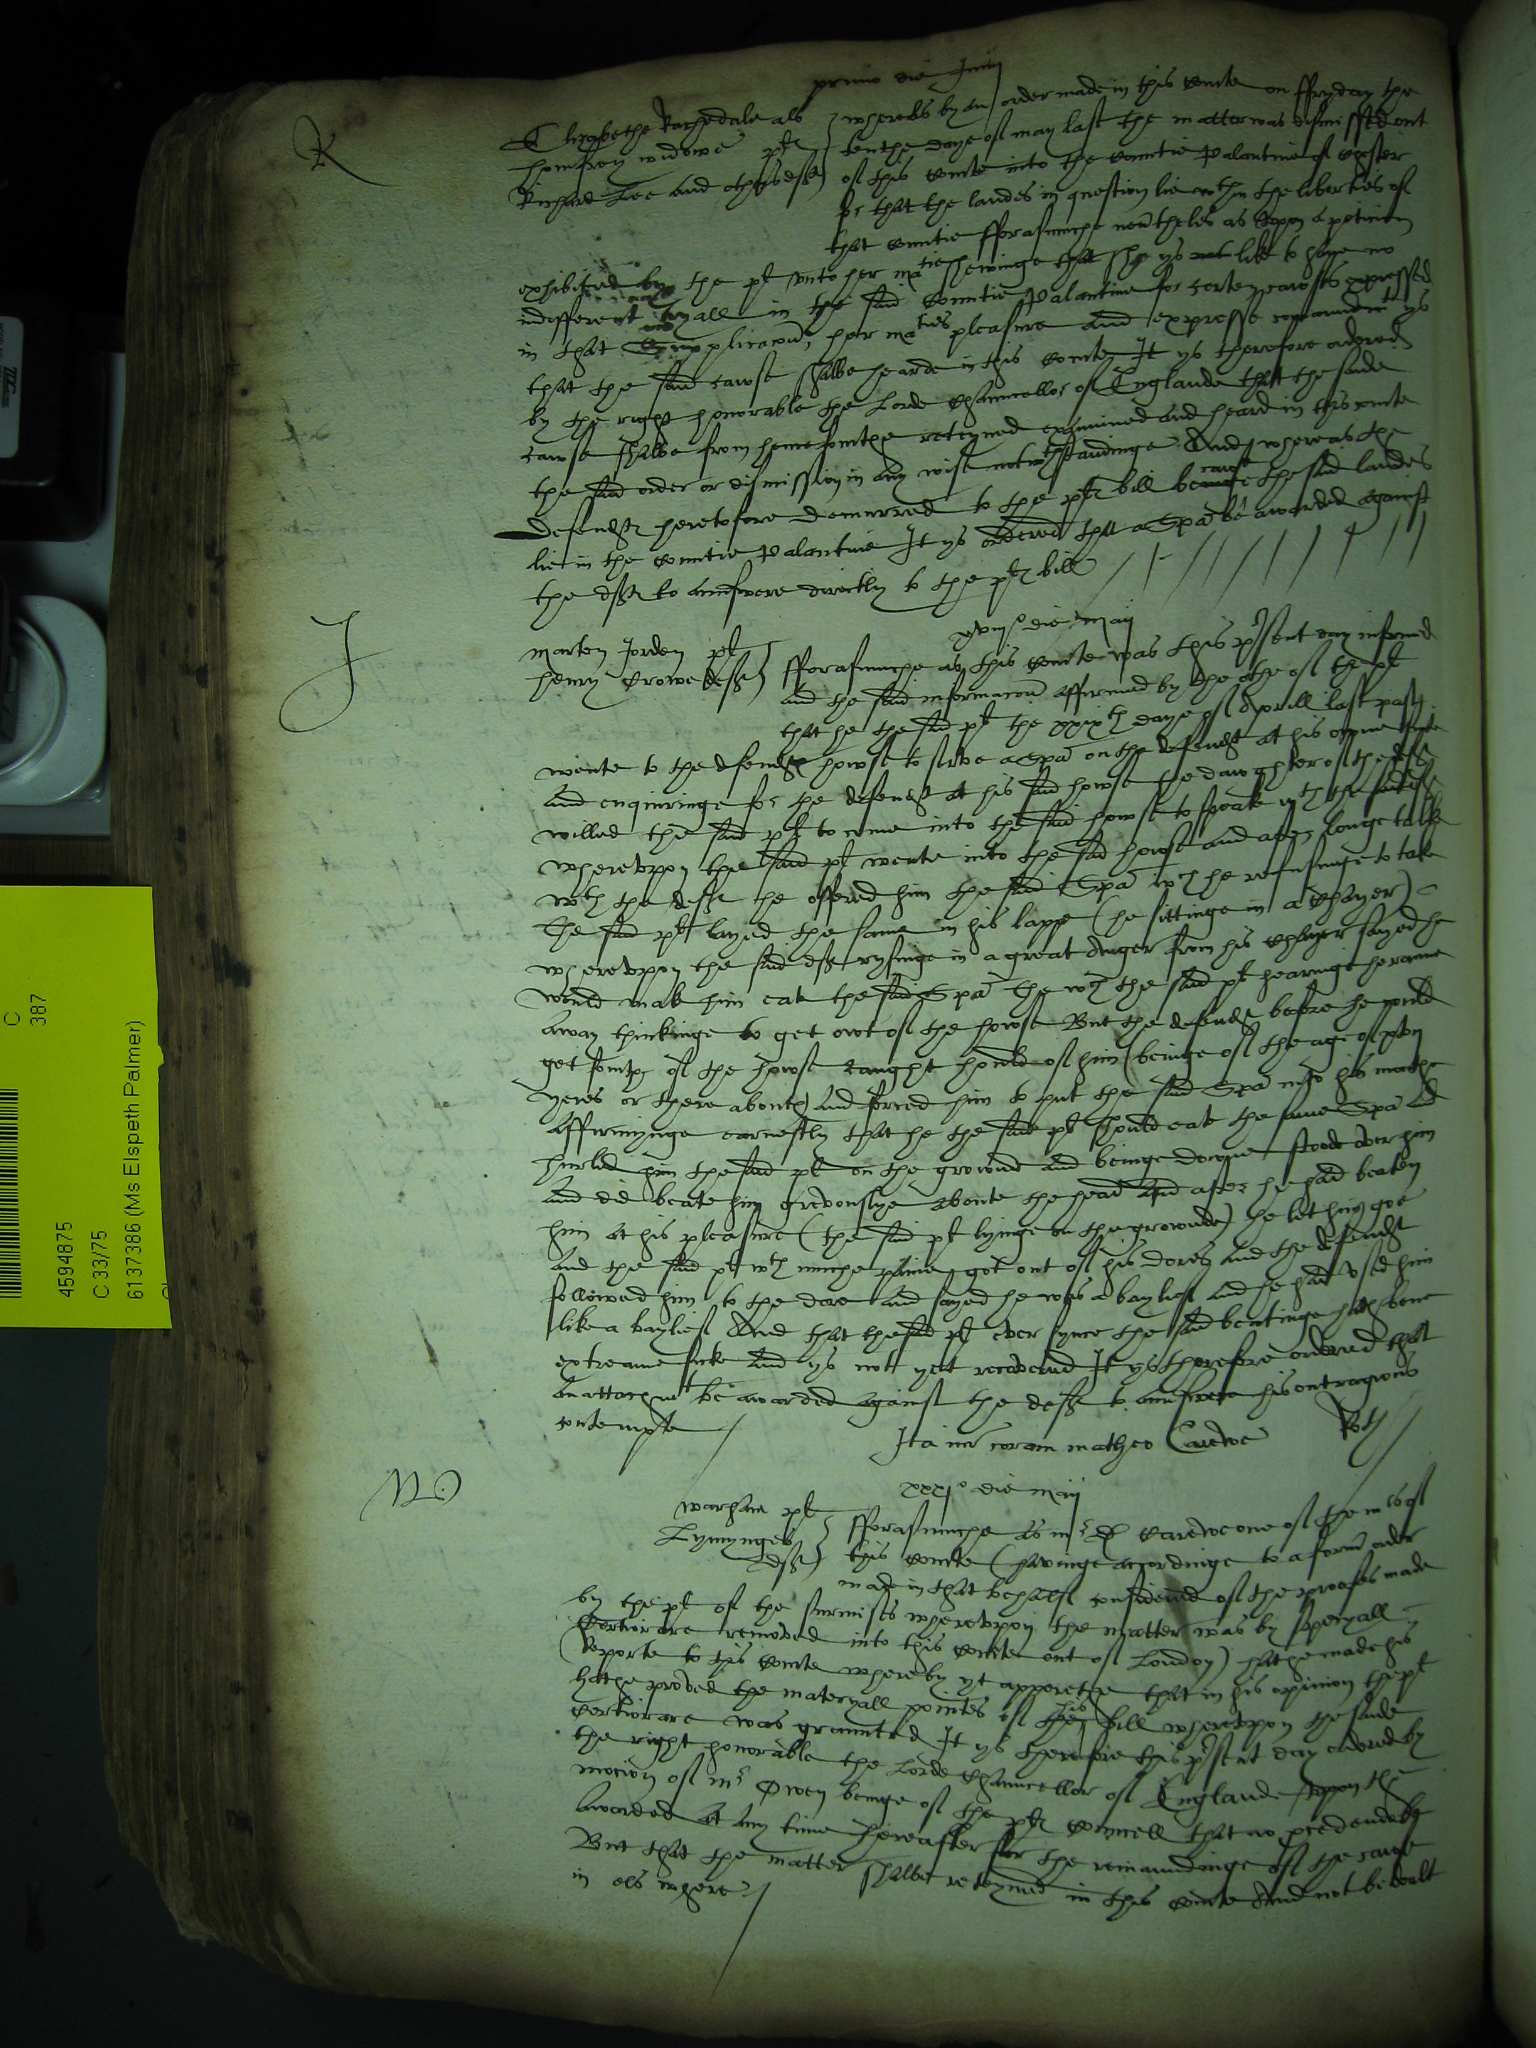 primo die Junij
R
Elizabethe Rachedale als
whereas by an order made in this Courte on ffryday the
Thomson widowe plt
tenthe daye of may last the matter was dismissed out
Richard Lee and others deftes
of this Courte into the Countie Palantine of Chester
for that the landes in question lie wthin the liberties of
that Countie fforasmuche nevertheles as vpon a peticion
exhibited by the plt vnto her matie shewinge that she ys like to have no
indifferent tryall in the said Countie Palantine for certen cawses expressed
in that Supplicacion, her maties pleasure and expresse comaundemt ys
that the said cawse shalbe hearde in this Courte It ys therefore ordered
by the right honorable the Lorde Chauncellor of Englande that the saide
cawse shalbe from henceforthe reteyned examined and heard in this courte
the said order or dismission in any wise notwthstandinge And whereas the
defendtes heretofore demurred to the pltes bill because the said landes
lie in the Countie Palantine It ys ordered that a Spa be awarded against
the deftes to aunswere directly to the pltes bill
xviijo die Maij
J
Marten Jorden plt
Henry Crowe deft
fforasmuche as this Courte was this present day informed
and the said informacion affirmed by the othe of the plt
that he the said plt the xxixth daye of Aprill last past
wente to the defendtes howse to serve a Spa on the defendt at his owne sute
and enquiringe for the defendt at his said howse the dawghter of the deft
willed the said plt to come into the said howse to speake wth the said deft
wherevppon the said plt wente into the said howse and after longe talke
wth the deft he offered him the said Spa wch he refusinge to take
The said plt layed the same in his lappe (he sittinge in a Chayer)
wherevppon the said deft rysinge in a great anger from his Chayer sayed he
would make him eate the said Spa The wch the said plt hearinge he ranne
away thinkinge to get owt of the howse But the defendt before he could
get forthe of the howse caught hould of him (beinge of the age of
yeres or there aboutes) and forced him to put the said Spa into his mouthe
affirmynge earnestly that he the said plt should eate the same Spa and
hurled him the said plt on the grownd and beinge downe stoode over him
and did beate him grevouslye aboute the head and after he had beaten
him at his pleasure (the said plt lyinge on the grownde) he let him goe
and the said plt wth muche paine got out of his dores and the defendt
followed him to the dore and sayed he was a baylief and he had vsed him
like a baylief And that the said plt ever synce the said beatinge hath bene
extreame sicke and ys not yet recovered It ys therefore ordered that
an attachmt be awarded against the deft to aunswere his outragious
contempte
Ita coram Matheo Carewe
xxxjo die Maij
Warham plt
Lymynges
deft
fforasmuche as mr D Carewe one of the mrs of
this Courte (havinge accordinge to a former order
made in that behalf considered of the proofes made
by the plt of the surmises wherevppon the matter was by speciall
Certiorare removed into this Courte out of London) hathe made his
Reporte to this Courte whereby yt apperethe that in his opinion the plt
hathe proved the materyall pointes of his bill wherevppon the saide
certiorare was graunted It ys therefore this present day ordered by
the right honorable the Lorde Chauncellor of Englande vppon the
mocion of mr Owen beinge of the pltes Councell that no procedendo be
awarded at any time hereafter for the remaundinge of the cause
But that the matter shalbe reteyned in this Courte And not be dealt
in els where
C
387
4594875
C 33/75
6137386 (Ms Elspeth Palmer)